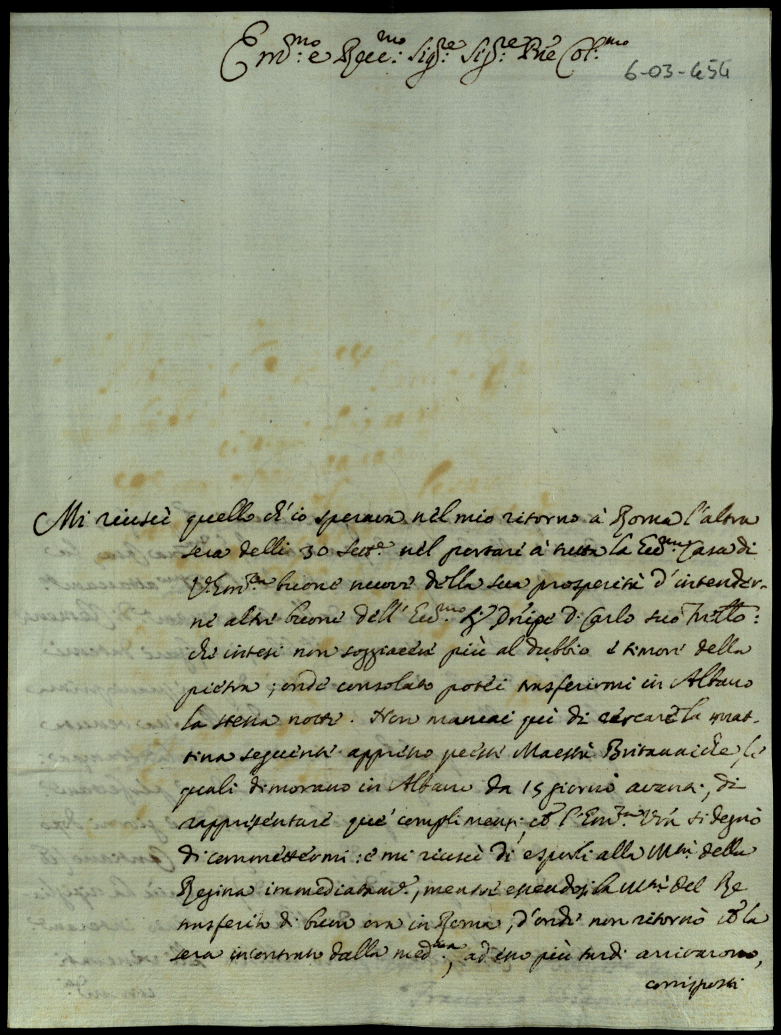 Em:mo e Rec:mo Sig:re Sig:re Pne Col:mo
6-03-454
Mi riuscì quello ch'io sperava nel mio ritorno à Roma l'altra
sera delli 30 Sett:e nel portare à tutta la Ecc:ma Casa di
V:Em:za buone nuove della sua prosperità d'intender-
ne altre buone dell'Ecc:mo Sr Dnipe D: Carlo suo frèllo:
che intesi non soggiacere più al dubbio e timore della
pietra; onde consolato potei trasferirmi in Albano
la stessa notte. Non mancai poi di cercare la mat-
tina seguente appresso queste Maestà Britanniche, le
quali dimorano in Albano da 15 giorni avanti, di
rappresentare que' complimenti, cħ l'Em:za Vrā si degnò
di commettermi: e mi riuscì di esporli alla M:tà della
Regina immediatam:e, mentre essendosi la M:tà del Re
trasferita di buon ora in Roma, d'onde non ritornò cħ la
sera incontrato dalla med:ma, ad esso più tardi arrivarono,
corrisposti